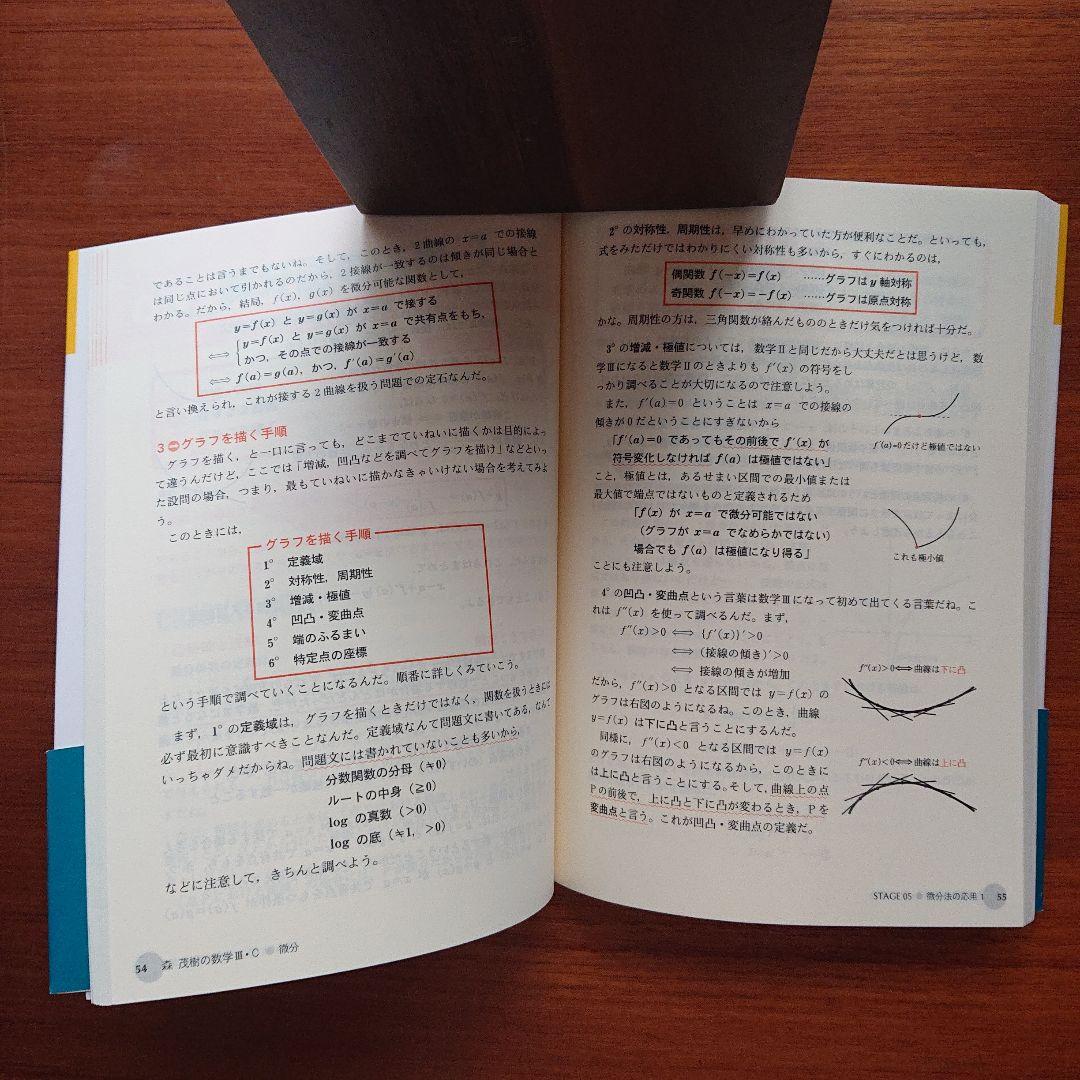 であることは言うまでもないね。そして，このとき，2曲線の x=a での接線
は同じ点において引かれるのだから，2接線が一致するのは傾きが同じ場合と
わかる。だから，結局，f(x)，g(x) を微分可能な関数として，
y=f(x) と y=g(x) が x=a で接する
⟺ { y=f(x) と y=g(x) が x=a で共有点をもち，
かつ，その点での接線が一致する
⟺ f(a)=g(a)，かつ，f′(a)=g′(a)
と言い換えられ，これが接する2曲線を扱う問題での定石なんだ。
3 グラフを描く手順
グラフを描く，と一口に言っても，どこまでていねいに描くかは目的によっ
て違うんだけど，ここでは「増減，凹凸などを調べてグラフを描け」などといっ
た設問の場合，つまり，最もていねいに描かなきゃいけない場合を考えてみよ
う。
このときには，
グラフを描く手順
1° 定義域
2° 対称性，周期性
3° 増減・極値
4° 凹凸・変曲点
5° 端のふるまい
6° 特定点の座標
という手順で調べていくことになるんだ。順番に詳しくみていこう。
まず，1° の定義域は，グラフを描くときだけではなく，関数を扱うときには
必ず最初に意識すべきことなんだ。定義域なんて問題文に書いてある，なんて
いっちゃダメだからね。問題文には書かれていないことも多いから，
分数関数の分母（≠0）
ルートの中身（≧0）
log の真数（>0）
log の底（≠1，>0）
などに注意して，きちんと調べよう。
54 森 茂樹の数学Ⅲ・C ● 微分
2° の対称性，周期性は，早めにわかっていた方が便利なことだ。といっても，
式をみただけではわかりにくい対称性も多いから，すぐにわかるのは，
偶関数 f(−x)=f(x) ……グラフは y 軸対称
奇関数 f(−x)=−f(x) ……グラフは原点対称
かな。周期性の方は，三角関数が絡んだもののときだけ気をつければ十分だ。
3° の増減・極値については，数学Ⅱと同じだから大丈夫だとは思うけど，数
学Ⅲになると数学Ⅱのときよりも f′(x) の符号をし
っかり調べることが大切になるので注意しよう。
また，f′(a)=0 ということは x=a での接線の
傾きが0だということにすぎないから
「f′(a)=0 であってもその前後で f′(x) が
符号変化しなければ f(a) は極値ではない」
f′(a)=0だけど極値ではない
こと，極値とは，あるせまい区間での最小値または
最大値で端点ではないものと定義されるため
「f(x) が x=a で微分可能ではない
（グラフが x=a でなめらかではない）
場合でも f(a) は極値になり得る」
これも極小値
ことにも注意しよう。
4° の凹凸・変曲点という言葉は数学Ⅲになって初めて出てくる言葉だね。こ
れは f″(x) を使って調べるんだ。まず，
f″(x)>0 ⟺ {f′(x)}′>0
⟺ (接線の傾き)′>0
⟺ 接線の傾きが増加
f″(x)>0⟺曲線は下に凸
だから，f″(x)>0 となる区間では y=f(x) の
グラフは右図のようになるね。このとき，曲線
y=f(x) は下に凸と言うことにするんだ。
同様に，f″(x)<0 となる区間では y=f(x)
のグラフは右図のようになるから，このときに
は上に凸と言うことにする。そして，曲線上の点
Pの前後で，上に凸と下に凸が変わるとき，Pを
変曲点と言う。これが凹凸・変曲点の定義だ。
f″(x)<0⟺曲線は上に凸
STAGE 05 ● 微分法の応用 1 55